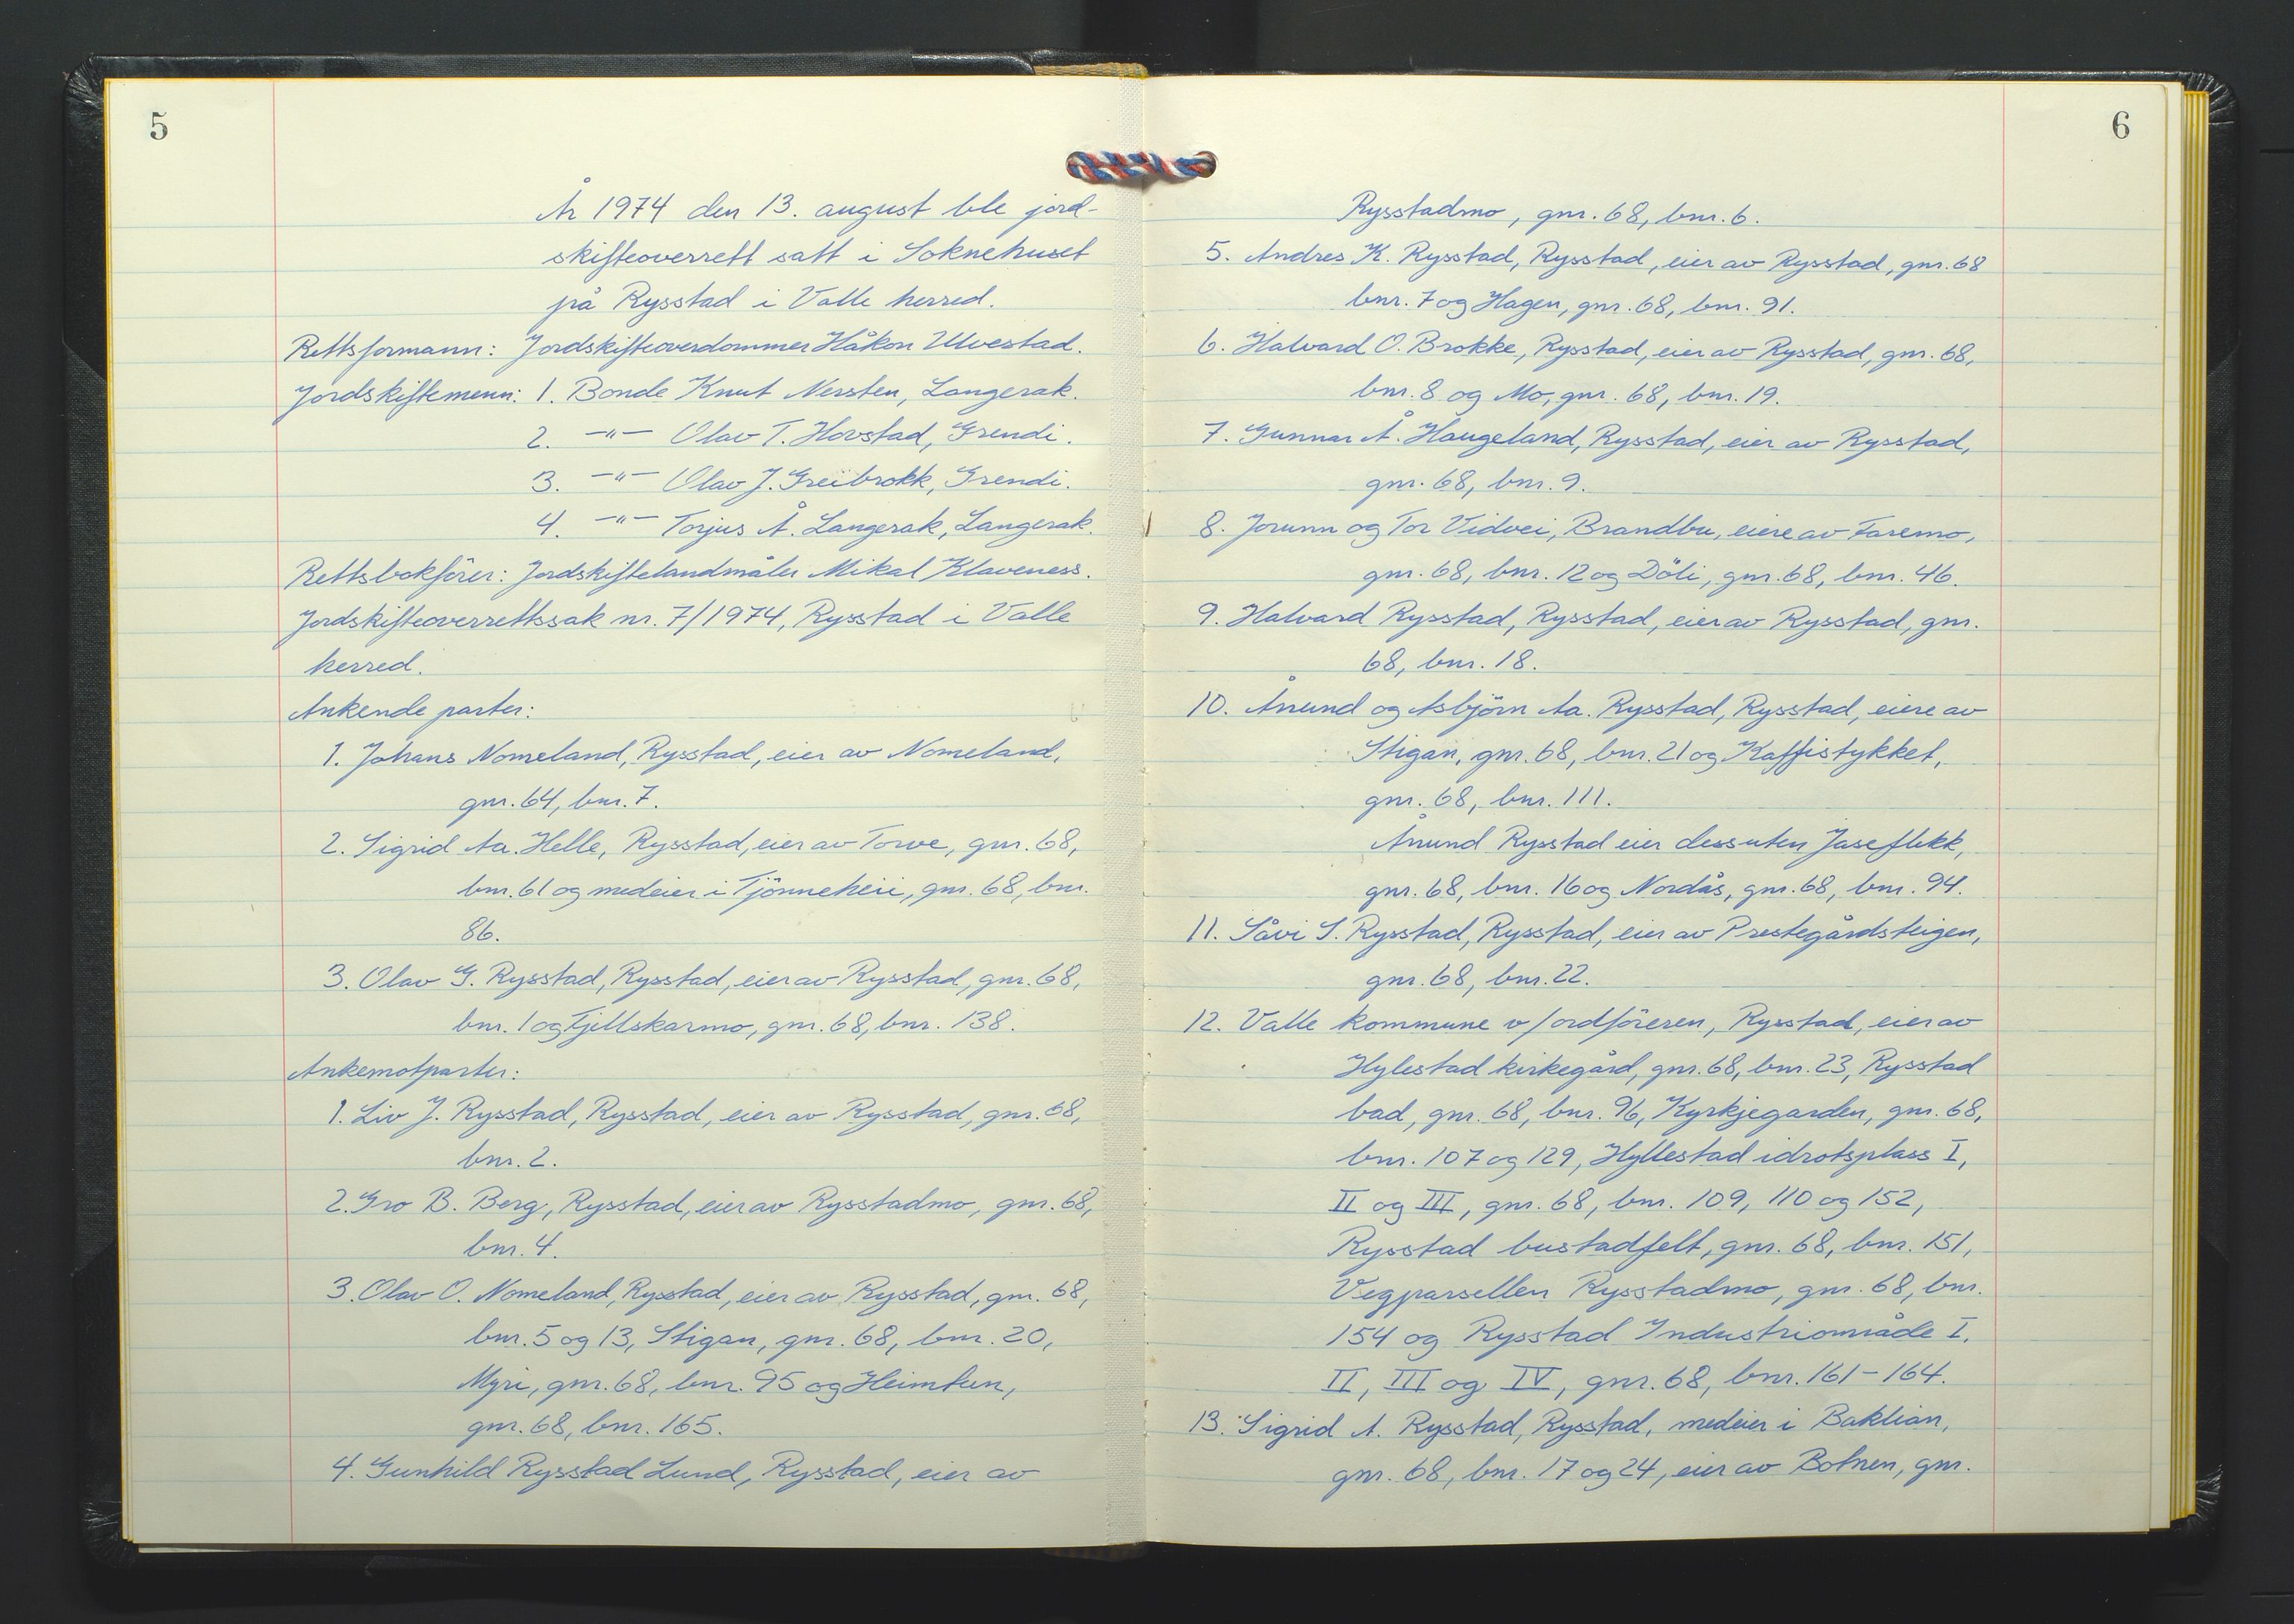 5
År 1974 den 13. august ble jord-
skifteoverrett satt i Soknehuset
på Rysstad i Valle herred.
Rettsformann: Jordskifteoverdommer Håkon Ulvestad.
Jordskiftemenn: 1. Bonde Knut Nersten, Langerak.
2. -"- Olav T. Hovstad, Grendi.
3. -"- Olav J. Greibrokk, Grendi.
4. -"- Torjus Å. Langerak, Langerak.
Rettsbokförer: Jordskiftelandmåler Mikal Klaveness.
Jordskifteoverrettssak nr. 7/1974, Rysstad i Valle
herred.
Ankende parter:
1. Johans Nomeland, Rysstad, eier av Nomeland,
gnr. 64, bnr. 7.
2. Sigrid Aa. Helle, Rysstad, eier av Torve, gnr. 68,
bnr. 61 og medeier i Tjönneheii, gnr. 68, bnr.
86.
3. Olav G. Rysstad, Rysstad, eier av Rysstad, gnr. 68,
bnr. 1 og Fjellskarmo, gnr. 68, bnr. 138.
Ankemotparter:
1. Liv J. Rysstad, Rysstad, eier av Rysstad, gnr. 68,
bnr. 2.
2. Gro B. Berg, Rysstad, eier av Rysstadmo, gnr. 68,
bnr. 4.
3. Olav O. Nomeland, Rysstad, eier av Rysstad, gnr. 68,
bnr. 5 og 13, Stigan, gnr. 68, bnr. 20,
Myri, gnr. 68, bnr. 95 og Heimtun,
gnr. 68, bnr. 165.
4. Gunhild Rysstad Lund, Rysstad, eier av
6
Rysstadmo, gnr. 68, bnr. 6.
5. Andres K. Rysstad, Rysstad, eier av Rysstad, gnr. 68
bnr. 7 og Hagen, gnr. 68, bnr. 91.
6. Halvard O. Brokke, Rysstad, eier av Rysstad, gnr. 68,
bnr. 8 og Mo, gnr. 68, bnr. 19.
7. Gunnar Å. Haugeland, Rysstad, eier av Rysstad,
gnr. 68, bnr. 9.
8. Jorunn og Tor Vidvei, Brandbu, eiere av Faremo,
gnr. 68, bnr. 12 og Döli, gnr. 68, bnr. 46.
9. Halvard Rysstad, Rysstad, eier av Rysstad, gnr.
68, bnr. 18.
10. Ånund og Asbjörn Aa. Rysstad, Rysstad, eiere av
Stigan, gnr. 68, bnr. 21 og Kaffistykket,
gnr. 68, bnr. 111.
Ånund Rysstad eier dessuten Jaseflekk,
gnr. 68, bnr. 16 og Nordås, gnr. 68, bnr. 94.
11. Såvi S. Rysstad, Rysstad, eier av Prestegårdsteigen,
gnr. 68, bnr. 22.
12. Valle kommune v/ordföreren, Rysstad, eier av
Hylestad kirkegård, gnr. 68, bnr. 23, Rysstad
bad, gnr. 68, bnr. 96, Kyrkjegarden, gnr. 68,
bnr. 107 og 129, Hyllestad idrotsplass I,
II og III, gnr. 68, bnr. 109, 110 og 152,
Rysstad bustadfelt, gnr. 68, bnr. 151,
Vegparsellen Rysstadmo, gnr. 68, bnr.
154 og Rysstad Industriområde I,
II, III og IV, gnr. 68, bnr. 161-164.
13. Sigrid A. Rysstad, Rysstad, medeier i Baklian,
gnr. 68, bnr. 17 og 24, eier av Botnen, gnr.